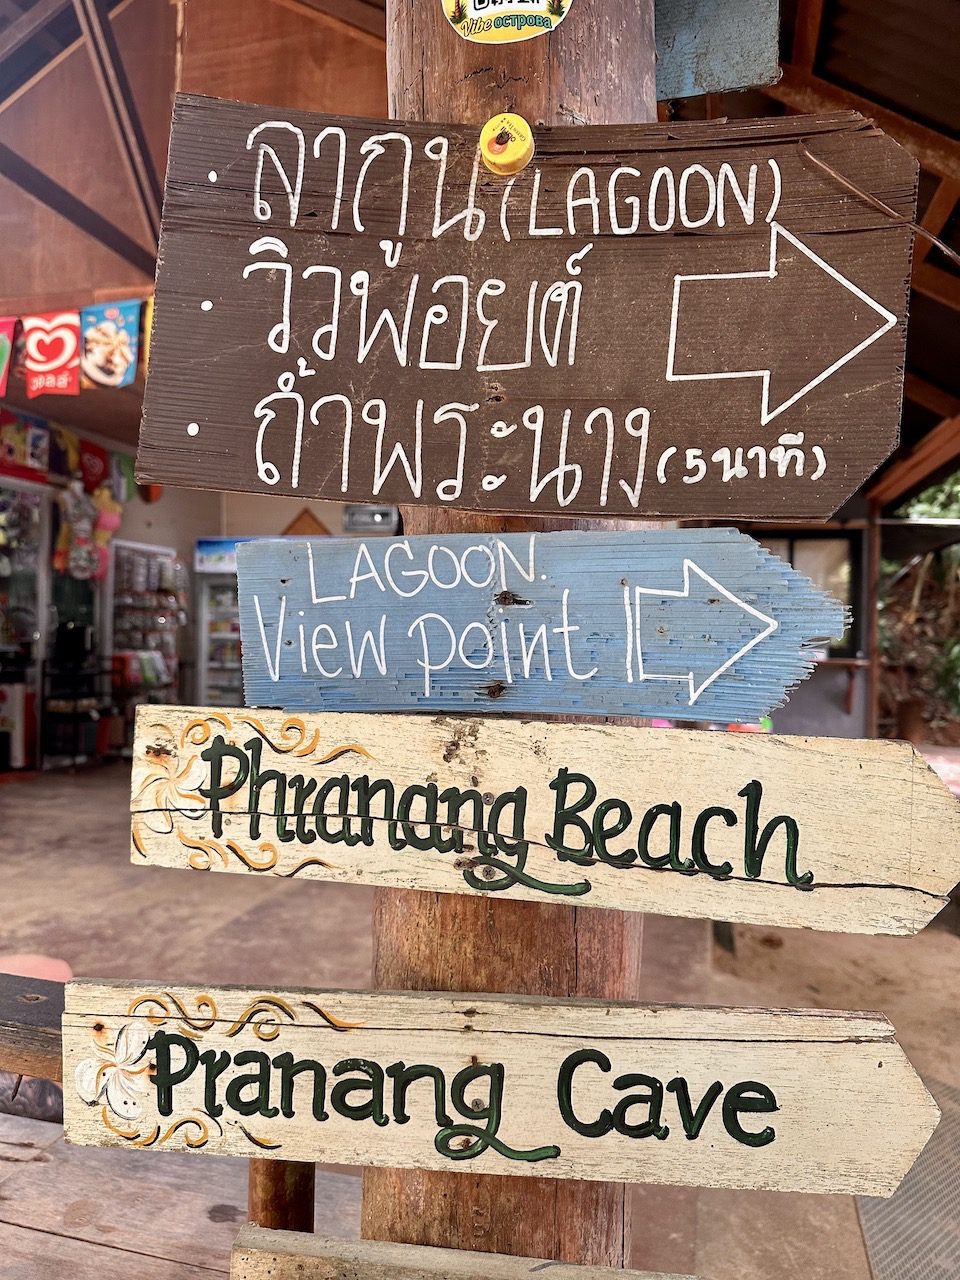 Vibe острова
• ลากูน (LAGOON)
• วิวพอยต์
• ถ้ำพระนาง (5 นาที)
LAGOON.
View point
Phranang Beach
Pranang Cave
วอลล์